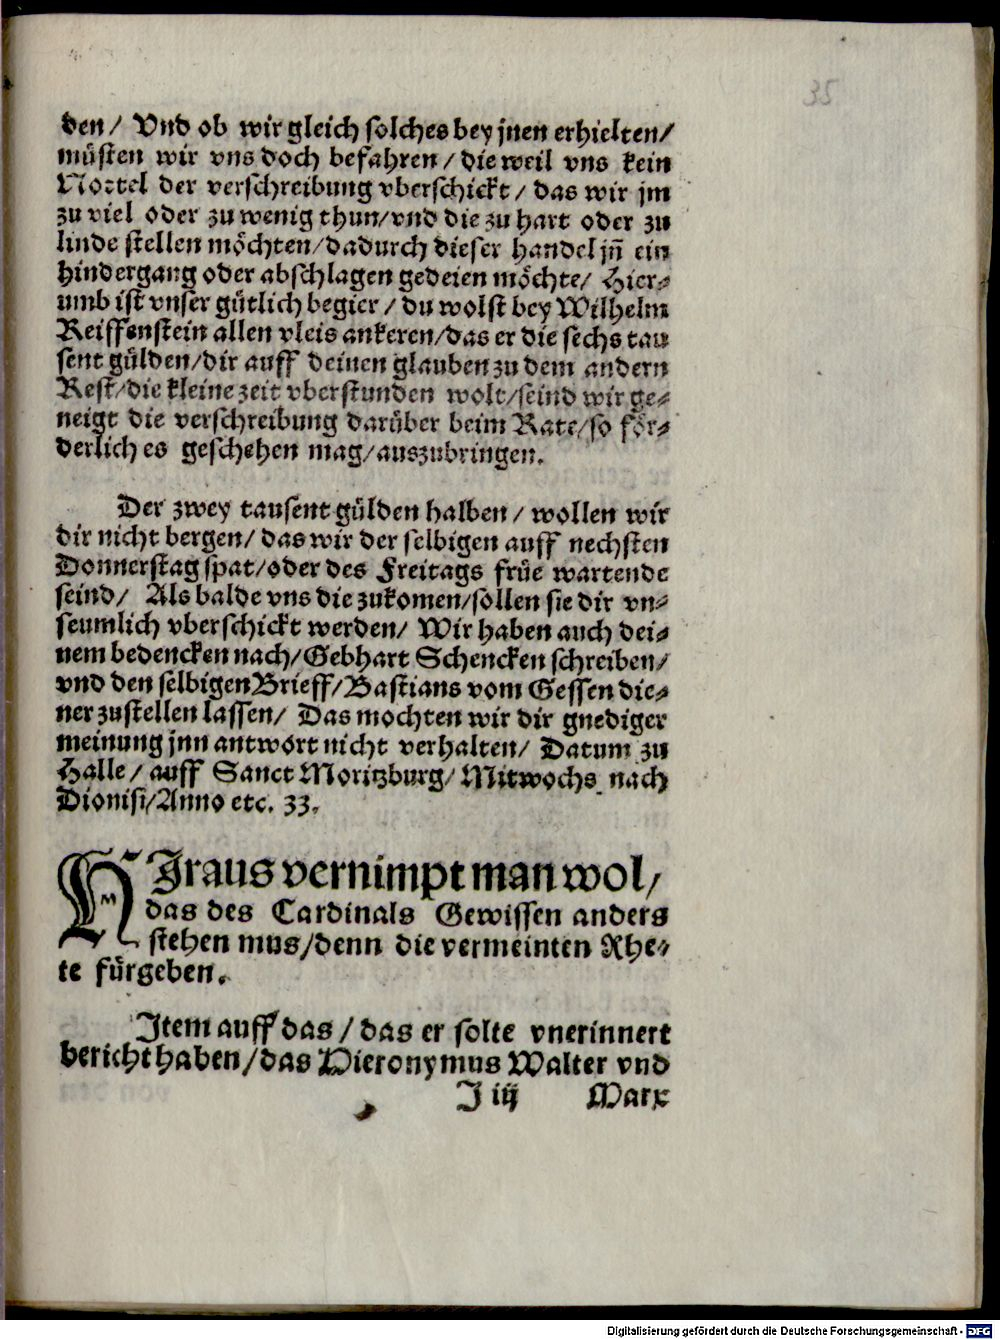 den/ Vnd ob wir gleich solches bey jnen erhielten/
müsten wir vns doch befahren/ die weil vns kein
Nottel der verschreibung vberschickt/ das wir jm
zu viel oder zu wenig thun/vnd die zu hart oder zu
linde stellen möchten/dadurch dieser handel jñ ein
hindergang oder abschlagen gedeien möchte/ Hier⸗
umb ist vnser gütlich begier/ du wolst bey Wilhelm
Reiffenstein allen vleis ankeren/das er die sechs tau
sent gülden/dir auff deinen glauben zu dem andern
Rest/die kleine zeit vberstunden wolt/seind wir ge⸗
neigt die verschreibung darüber beim Rate/so för⸗
derlich es geschehen mag/auszubringen.
Der zwey tausent gülden halben/ wollen wir
dir nicht bergen/ das wir der selbigen auff nechsten
Donnerstag spat/oder des Freitags früe wartende
seind/ Als balde vns die zukomen/sollen sie dir vn⸗
seumlich vberschickt werden/ Wir haben auch dei⸗
nem bedencken nach/Gebhart Schencken schreiben/
vnd den selbigen Brieff/Bastians vom Gessen die⸗
ner zustellen lassen/ Das mochten wir dir gnediger
meinung jnn antwort nicht verhalten/ Datum zu
Halle/ auff Sanct Moritzburg/ Mitwochs nach
Dionisi/Anno etc. 33.
HJraus vernimpt man wol/
das des Cardinals Gewissen anders
stehen mus/denn die vermeinten Rhe⸗
te fürgeben.
Jtem auff das/ das er solte vnerinnert
bericht haben/das Hieronymus Walter vnd
J iij Marx
Digitalisierung gefördert durch die Deutsche Forschungsgemeinschaft - DFG